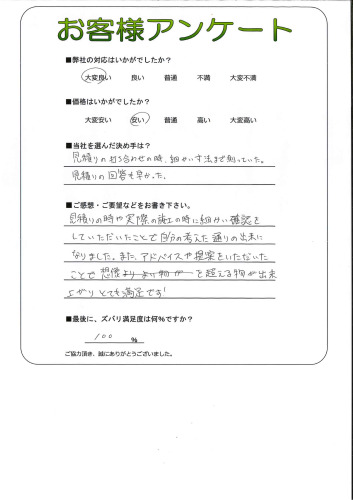 お客様アンケート
■弊社の対応はいかがでしたか？
大変良い　良い　普通　不満　大変不満
■価格はいかがでしたか？
大変安い　安い　普通　高い　大変高い
■当社を選んだ決め手は？
見積りの打ち合わせの時、細かい寸法まで測っていた。
見積りの回答も早かった。
■ご感想・ご要望などをお書き下さい。
見積りの時や実際の施工の時に細かい確認を
していただいたことで自分の考えた通りの出来に
なりました。また、アドバイスや提案をいただいた
ことで想像を超える物が出来
上がりとても満足です!
■最後に、ズバリ満足度は何％ですか？
100 ％
ご協力頂き、誠にありがとうございました。